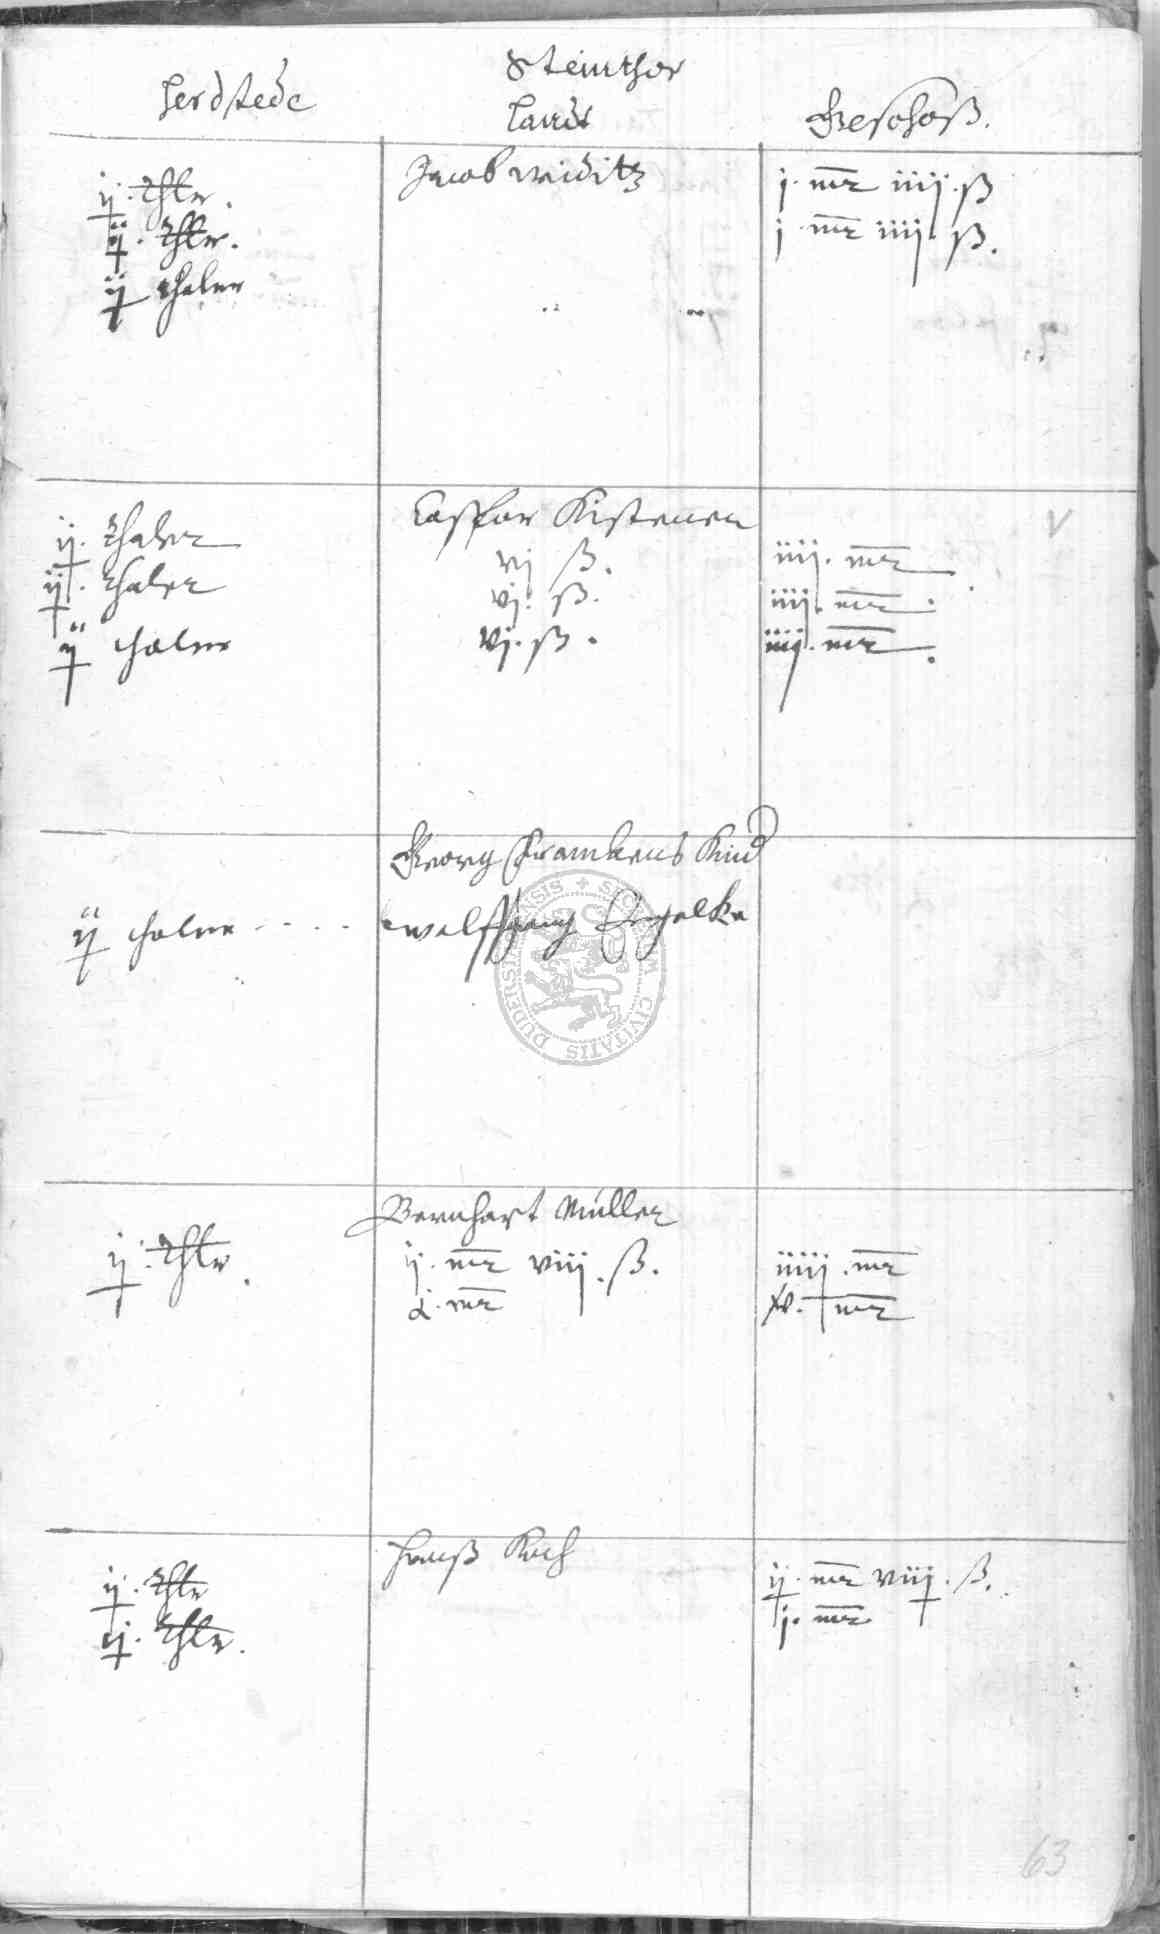 Steinthor
Herdstede Landt Geschoß.
Jacob Widitz
ij. thlr. j. mr iiij. ß
ij. thlr. j. mr iiij. ß.
ij thaler
Caspar Kistener
ij. thaler vj ß. iiij. mr
ij. thaler vj. ß. iiij. mr.
ij thaler vj. ß. iiij. mr.
Georg Franckens Kind
ij thaler .... Wolffgang Engelke
SIGILLVM CIVITATIS DUDERSTADENSIS
Bernhart Muller
ij. thlr. ij. mr viij. ß. iiij. mr
mr mr
Hanß Koch
ij. thlr ij. mr viij. ß.
ij. thlr. j. mr
63